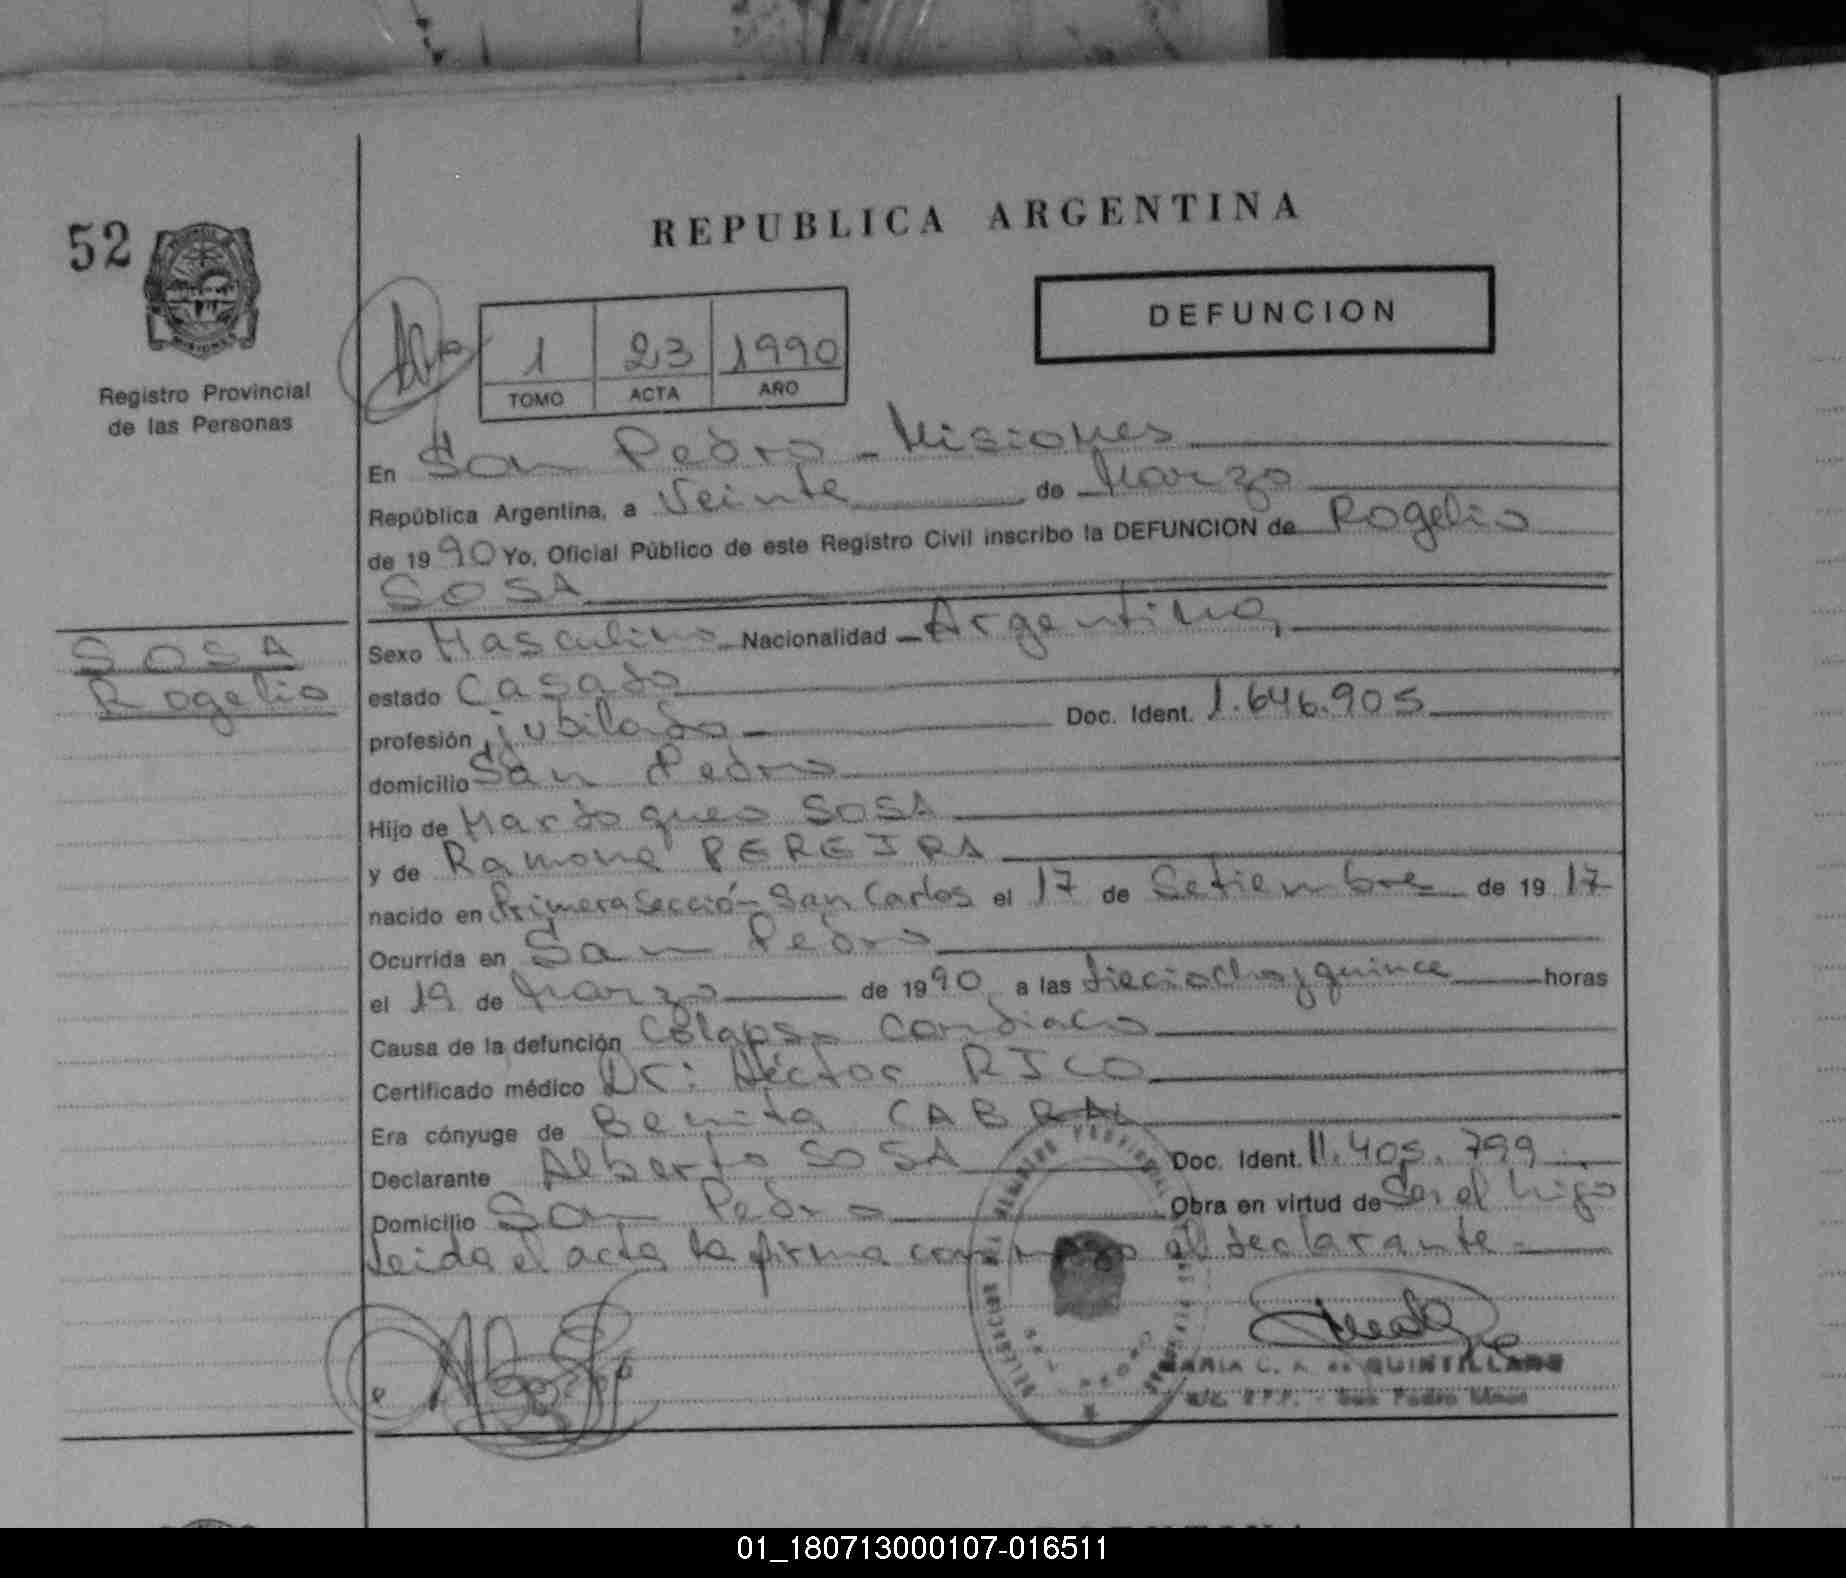 REPUBLICA ARGENTINA
52
DEFUNCION
MISIONES
1 23 1990
TOMO ACTA AÑO
Registro Provincial
de las Personas
En San Pedro - Misiones
República Argentina, a Veinte de Marzo
de 1990 Yo, Oficial Público de este Registro Civil inscribo la DEFUNCION de Rogelio
SOSA
SOSA
Rogelio
Sexo Masculino Nacionalidad Argentina
estado Casado
profesión jubilado Doc. Ident. 1.646.905
domicilio San Pedro
Hijo de Mardoqueo SOSA
y de Ramona PEREIRA
nacido en Primera Sección San Carlos el 17 de Setiembre de 1917
Ocurrida en San Pedro
el 19 de Marzo de 1990 a las dieciocho y quince horas
Causa de la defunción Colapso Cardiaco
Certificado médico Dr: Héctor RICO
Era cónyuge de Benita CABRAL
Declarante Alberto SOSA Doc. Ident. 11.405.799
Domicilio San Pedro Obra en virtud de Ser el hijo
Leida el acta la firma conmigo el declarante
MARIA C. A. de QUINTILLANE
San Pedro Mnes
01_180713000107-016511